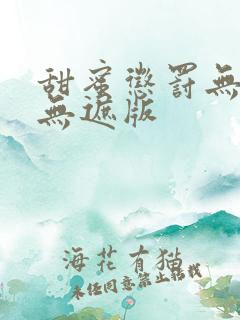 甜蜜懲罰無
無遮版
海花有貓
未经同意禁止转载